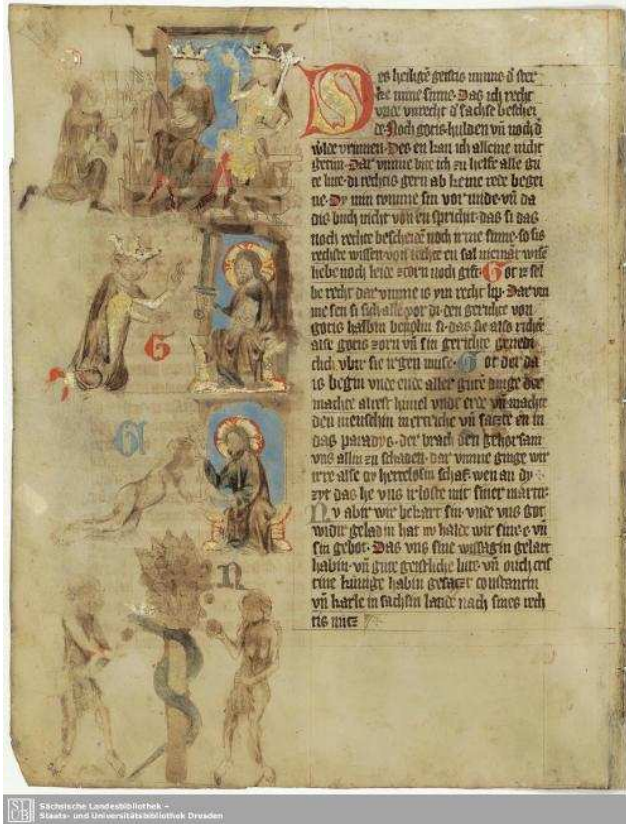 Des heiligē geistis minne d̄ ster
ke mine sinne. Das ich recht
unde unrecht d̄ sachse beschei
de. Noch gotis hulden vn̄ noch d̄
Des en kan ich alleine nicht
getun. Dar vmme bite ich zu helfe alle gu
te lute. di rechtis gern ab keine rede begei
ne. Dy min tumme sin vor mide. vn̄ da
dis buch nicht von en spricht. das si das
noch rechte bescheidē noch irme sinne. so sis
rechte wissen. von rechte en sal niemāt wisē
liebe noch leide zorn noch gift. Got is sel
be recht dar vmme is ym recht lip. Dar vm
me sen si sich alle vor. di den gerichte von
gotis halbin beuoln si. das sie also richtē
alse gotis zorn vn̄ sin gerichte genedi
clich vbir sie irgen muse. Got der da
is begin vnde ende aller gute dinge der
machte alrest himel vnde erde vn̄ machte
den menschin in ertriche vn̄ saczte en in
das paradys. der brach den gehorsam
vns allin zu schaden. dar vmme ginge wir
irre alse dy hertelosin schaf. wen an dy
zyt das he vns irloste mit siner martir.
Nv abir wir bekart sin. vnde vns got
widir geladin hat nv halde wir sine e. vn̄
sin gebot. Das vns sine wissagin gelart
habin. vn̄ gute geistliche lute. vn̄ ouch cris
tine kunige habin gesaczt constantin
vn̄ karle in sachsin lande nach sines rech
tis
G
G
N
SLUB
Sächsische Landesbibliothek –
Staats- und Universitätsbibliothek Dresden